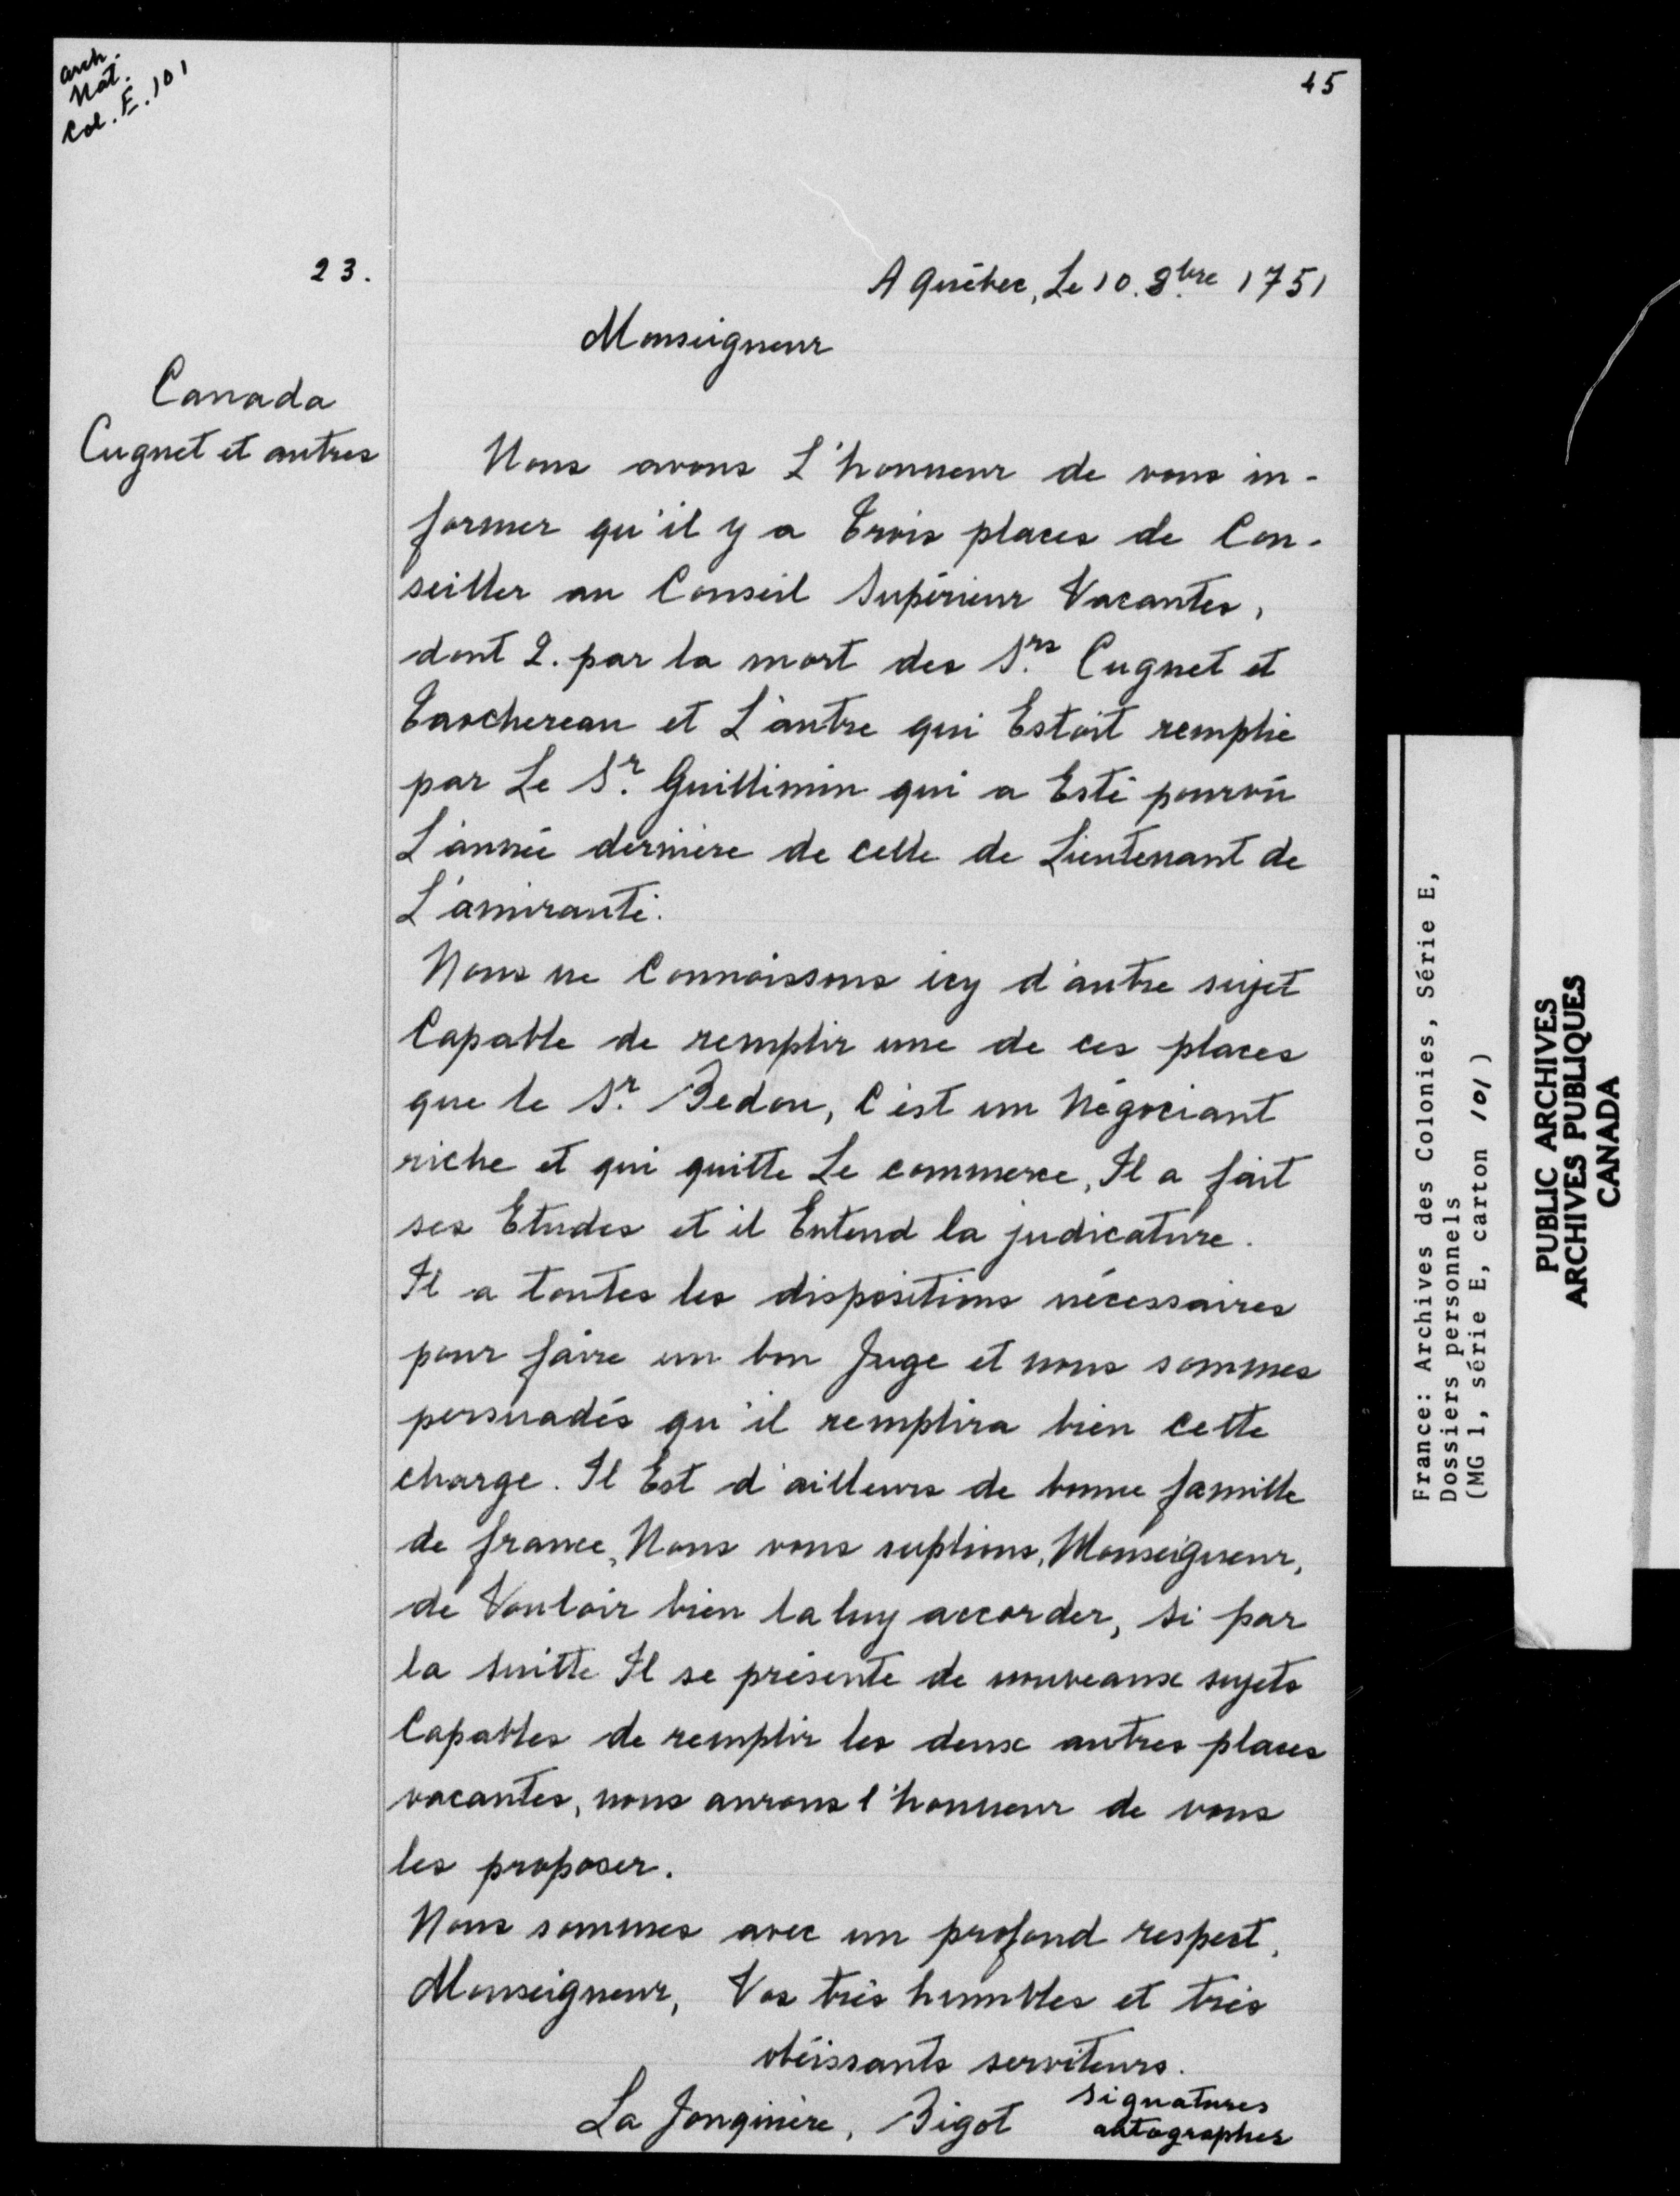 arch.
Nat.
Col. E. 101
45
23.
A Québec, Le 10. 8.bre 1751
Monseigneur
Canada
Cugnet et autres
Nous avons L'honneur de vous in-
former qu'il y a Trois places de Con-
seiller au Conseil Supérieur Vacantes,
dont 2. par la mort des S.rs Cugnet et
Taschereau et L'autre qui Estoit remplie
par Le S.r Guillimin qui a Esté pourvû
L'année dernière de celle de Lieutenant de
L'amirauté.
Nous ne Connoissons icy d'autre sujet
Capable de remplir une de ces places
que le S.r Bedou, C'est un Négociant
riche et qui quitte Le commerce, Il a fait
ses Etudes et il Entend la judicature.
Il a toutes les dispositions nécessaires
pour faire un bon Juge et nous sommes
persuadés qu'il remplira bien Cette
charge. Il Est d'ailleurs de bonne famille
de france, Nous vous suplions, Monseigneur,
de Vouloir bien la luy accorder, Si par
la Suitte Il se présente de nouveaux sujets
Capables de remplir les deux autres places
vacantes, nous aurons l'honneur de vous
les proposer.
Nous sommes avec un profond respect,
Monseigneur, Vos très humbles et très
obéissants serviteurs.
La Jonquière, Bigot signatures
autographes
France: Archives des Colonies, Série E,
Dossiers personnels
(MG 1, série E, carton 101)
PUBLIC ARCHIVES
ARCHIVES PUBLIQUES
CANADA